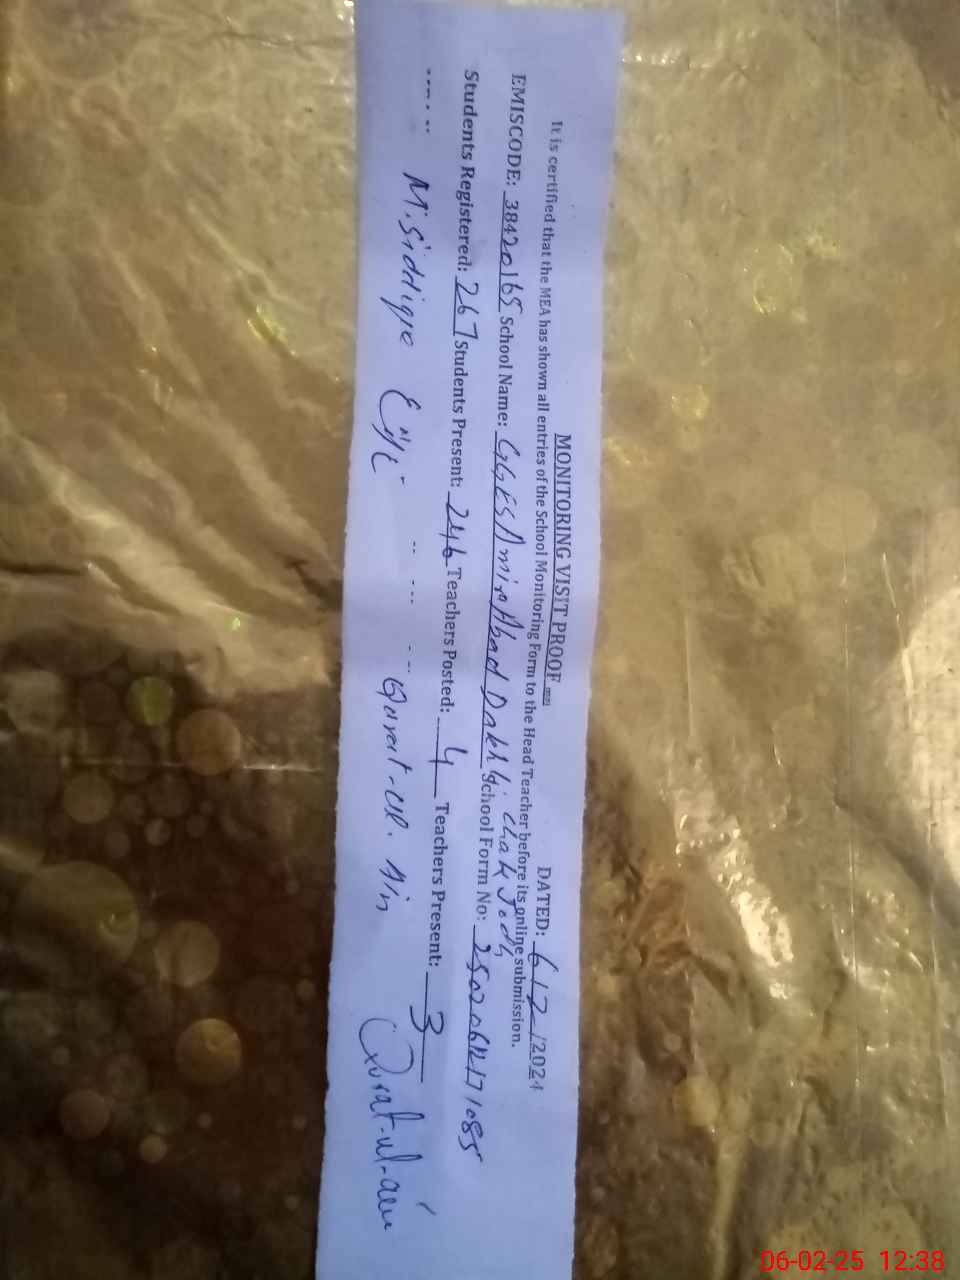 MONITORING VISIT PROOF DATED: 6/2/2024
It is certified that the MEA has shown all entries of the School Monitoring Form to the Head Teacher before its online submission.
EMISCODE: 38420165 School Name: GGES Amir Abad Dakhli chak Jodh School Form No:
Students Registered: 267 Students Present: 246 Teachers Posted: 4 Teachers Present: 3
M. Siddique Qurat-ul-Ain Qurat-ul-ain
06-02-25 12:38